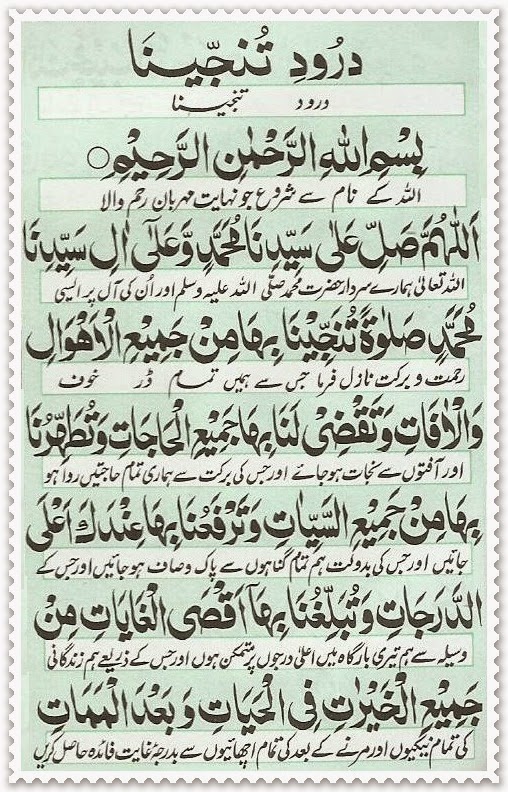 درُودِ تُنجّینَا
درود تنجینا
بِسْمِ اللهِ الرَّحْمٰنِ الرَّحِیْمِ○
اللہ کے نام سے شروع جو نہایت مہربان رحم والا
اَللّٰهُمَّ صَلِّ عَلٰی سَیِّدِنَا مُحَمَّدٍ وَّ عَلٰۤی اٰلِ سَیِّدِنَا
اللہ تعالیٰ ہمارے سردار حضرت محمد صلّی اللہ علیہ وسلم اور اُن کی آل پر ایسی
مُحَمَّدٍ صَلٰوةً تُنَجِّیْنَا بِهَا مِنْ جَمِیْعِ الْاَهْوَالِ
رحمت و برکت نازل فرما جس سے ہمیں تمام ڈر خوف
وَالْاٰفَاتِ وَتَقْضِیْ لَنَا بِهَا جَمِیْعَ الْحَاجَاتِ وَتُطَهِّرُنَا
اور آفتوں سے نجات ہو جائے اور جس کی برکت سے ہماری تمام حاجتیں روا ہو
بِهَا مِنْ جَمِیْعِ السَّیِّاٰتِ وَتَرْفَعُنَا بِهَا عِنْدَكَ اَعْلَی
جائیں اور جس کی بدولت ہم تمام گناہوں سے پاک و صاف ہو جائیں اور جس کے
الدَّرَجَاتِ وَتُبَلِّغُنَا بِهَاۤ اَقْصَی الْغَایَاتِ مِنْ
وسیلہ سے ہم تیری بارگاہ میں اعلیٰ درجوں پر متمکن ہوں اور جس کے ذریعے ہم زندگانی
جَمِیْعِ الْخَیْرٰتِ فِی الْحَیَاتِ وَ بَعْدَ الْمَمَاتِ
کی تمام نیکیوں اور مرنے کے بعد کی تمام اچھائیوں سے بدرجہ غایت فائدہ حاصل کریں